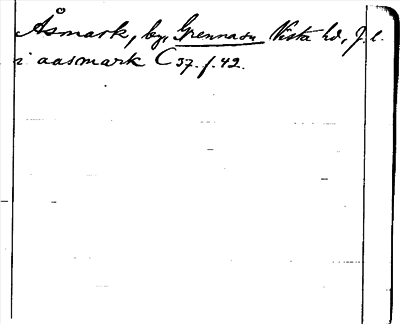 Åsmark, by, Grenna sn Vista hd, J. l.
i aasmark C 37. f. 42.